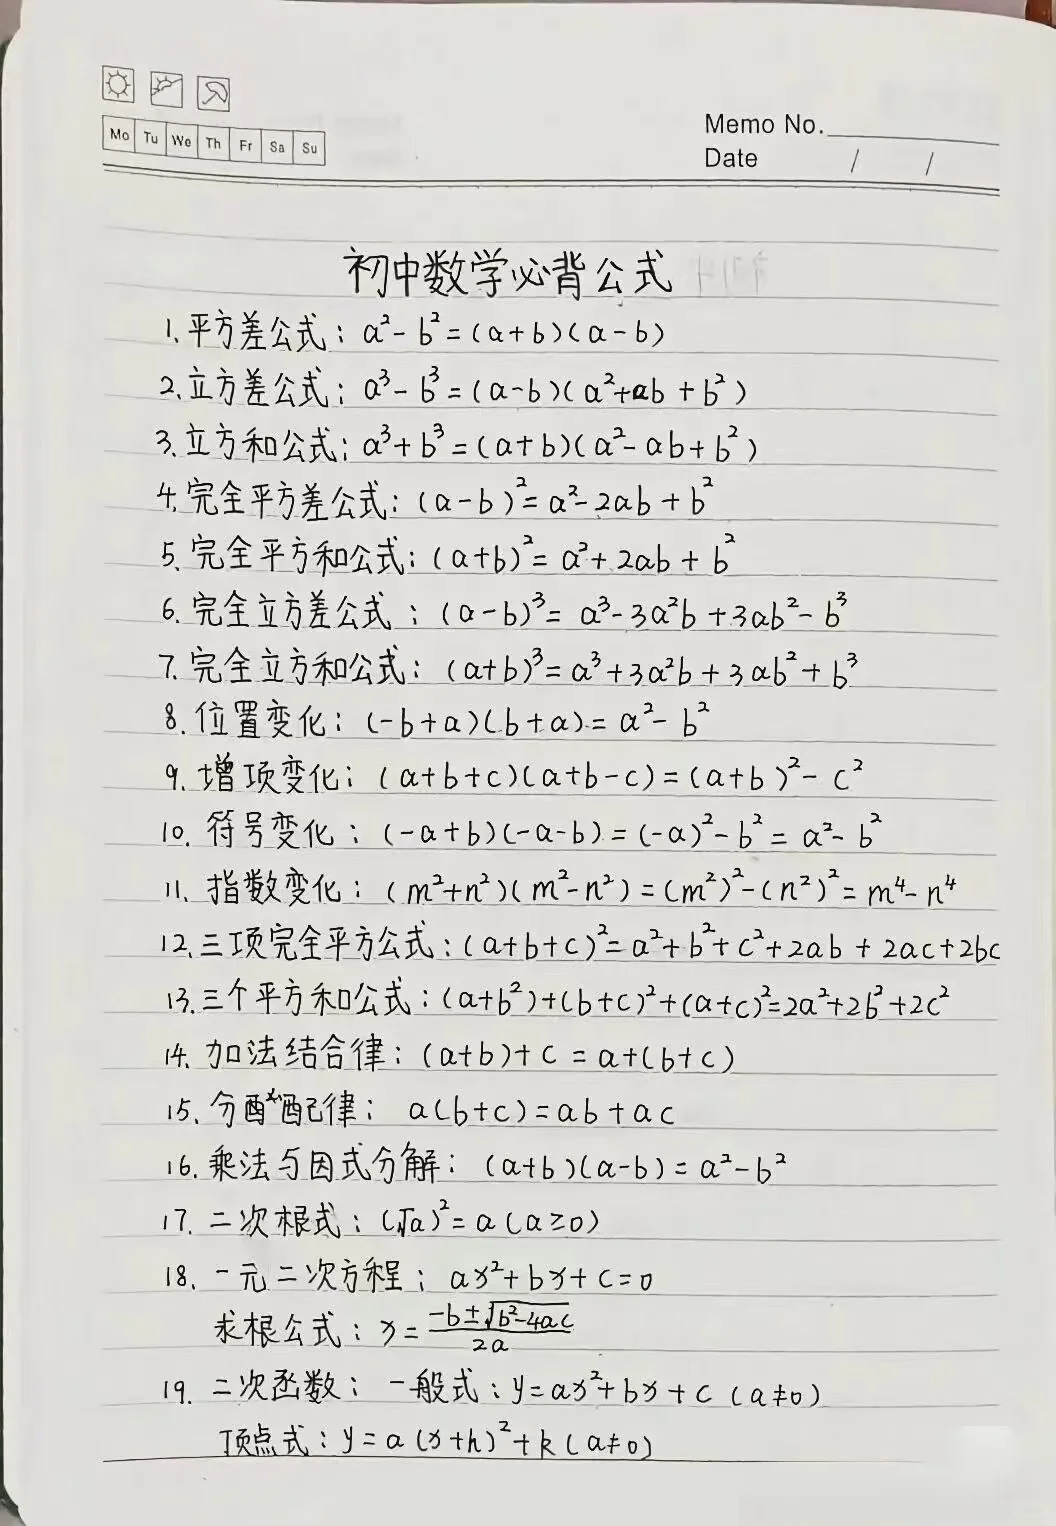 Mo Tu We Th Fr Sa Su
Memo No.
Date / /
初中数学必背公式
1.平方差公式：a²-b²=(a+b)(a-b)
2.立方差公式：a³-b³=(a-b)(a²+ab+b²)
3.立方和公式：a³+b³=(a+b)(a²-ab+b²)
4.完全平方差公式：(a-b)²=a²-2ab+b²
5.完全平方和公式：(a+b)²=a²+2ab+b²
6.完全立方差公式：(a-b)³=a³-3a²b+3ab²-b³
7.完全立方和公式：(a+b)³=a³+3a²b+3ab²+b³
8.位置变化：(-b+a)(b+a)=a²-b²
9.增项变化：(a+b+c)(a+b-c)=(a+b)²-c²
10.符号变化：(-a+b)(-a-b)=(-a)²-b²=a²-b²
11.指数变化：(m²+n²)(m²-n²)=(m²)²-(n²)²=m⁴-n⁴
12.三项完全平方公式：(a+b+c)²=a²+b²+c²+2ab+2ac+2bc
13.三个平方和公式：(a+b²)+(b+c)²+(a+c)²=2a²+2b²+2c²
14.加法结合律：(a+b)+c=a+(b+c)
15.分配律：a(b+c)=ab+ac
16.乘法与因式分解：(a+b)(a-b)=a²-b²
17.二次根式：(√a)²=a(a≥0)
18.一元二次方程：ax²+bx+c=0
求根公式：x=(-b±√(b²-4ac))/2a
19.二次函数：一般式：y=ax²+bx+c(a≠0)
顶点式：y=a(x+h)²+k(a≠0)